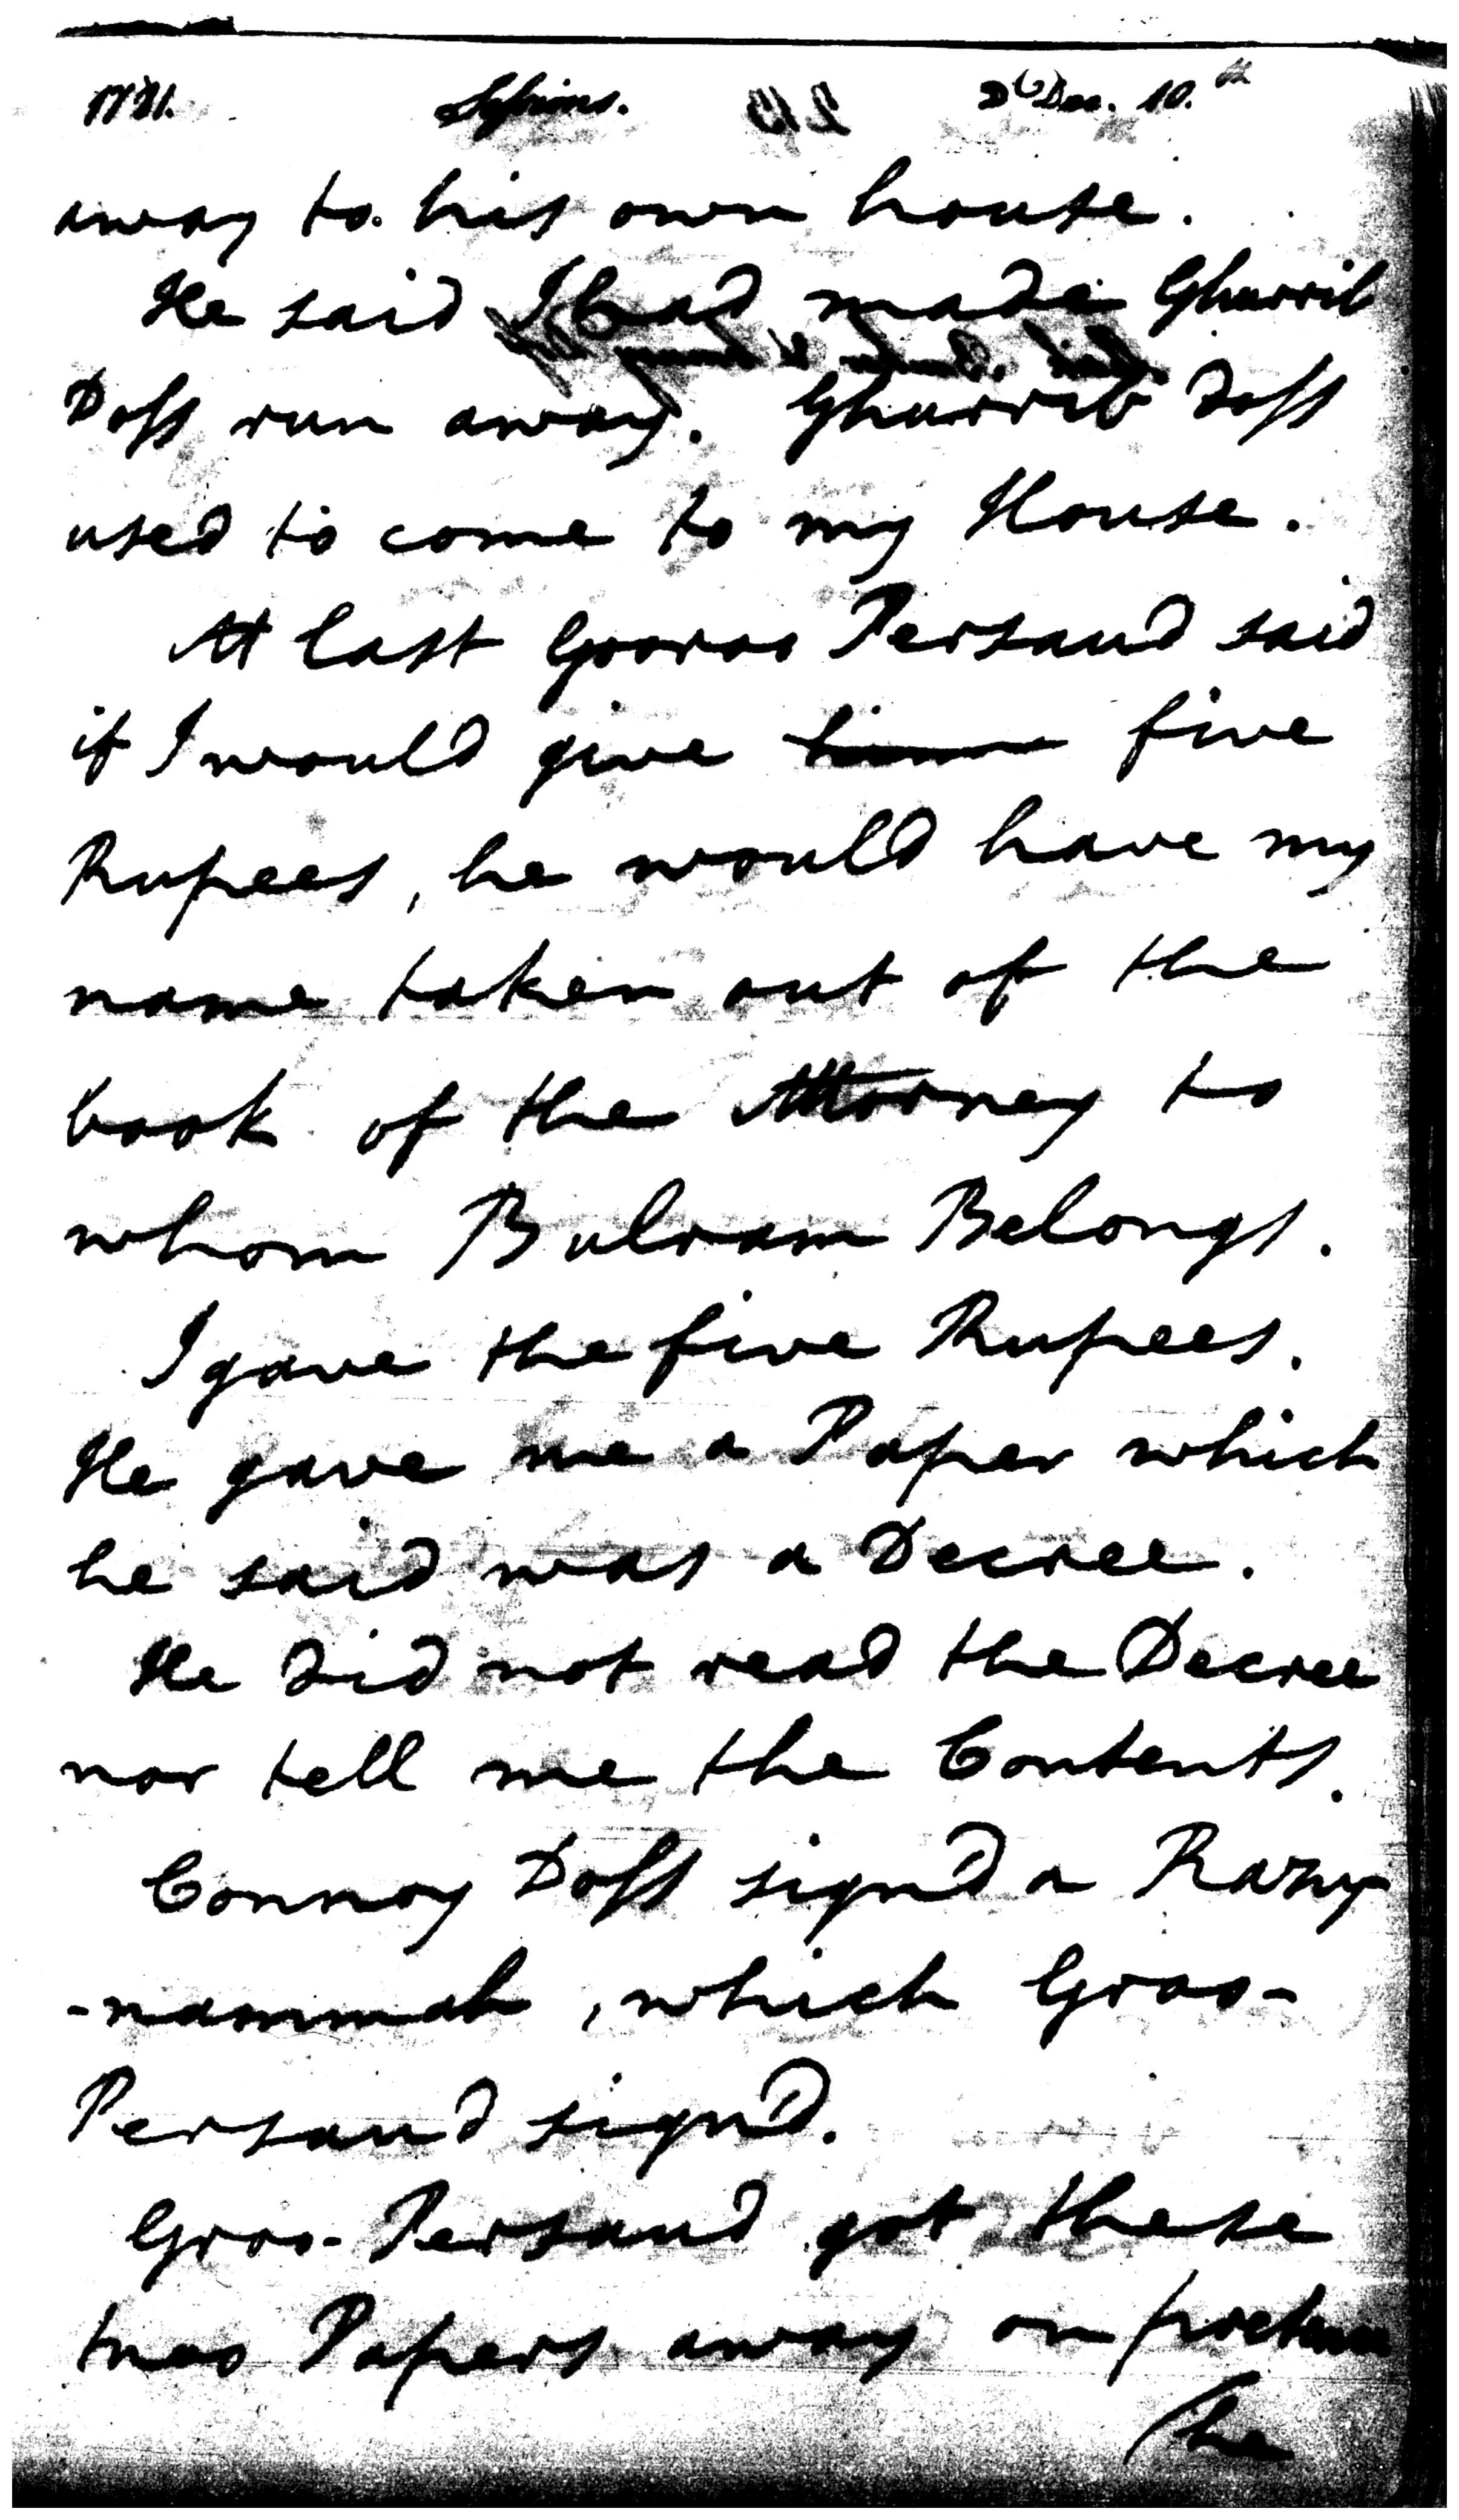 1781. Sessions. Dec. 10.th
away to his own house.
He said I had made Ghurrib
Doss run away. Ghurrib Doss
used to come to my House.
At last Gooroo Persaud said
if I would give him five
Rupees, he would have my
name taken out of the
book of the Attorney to
whom Bulram Belongs.
I gave the five Rupees.
He gave me a Paper which
he said was a Decree.
He did not read the Decree
nor tell me the Contents.
Connoy Doss signd a Razy
-nammah, which Groo-
Persaud signd.
Groo-Persaud got these
two Papers away on pretence
he